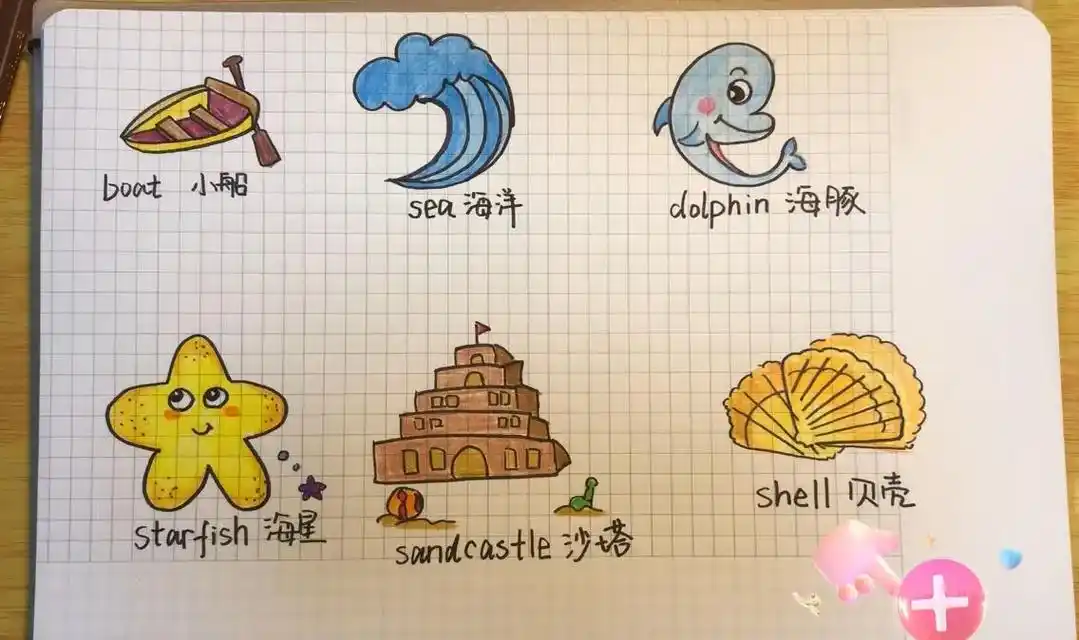 boat 小船
sea 海洋
dolphin 海豚
starfish 海星
sandcastle 沙塔
shell 贝壳